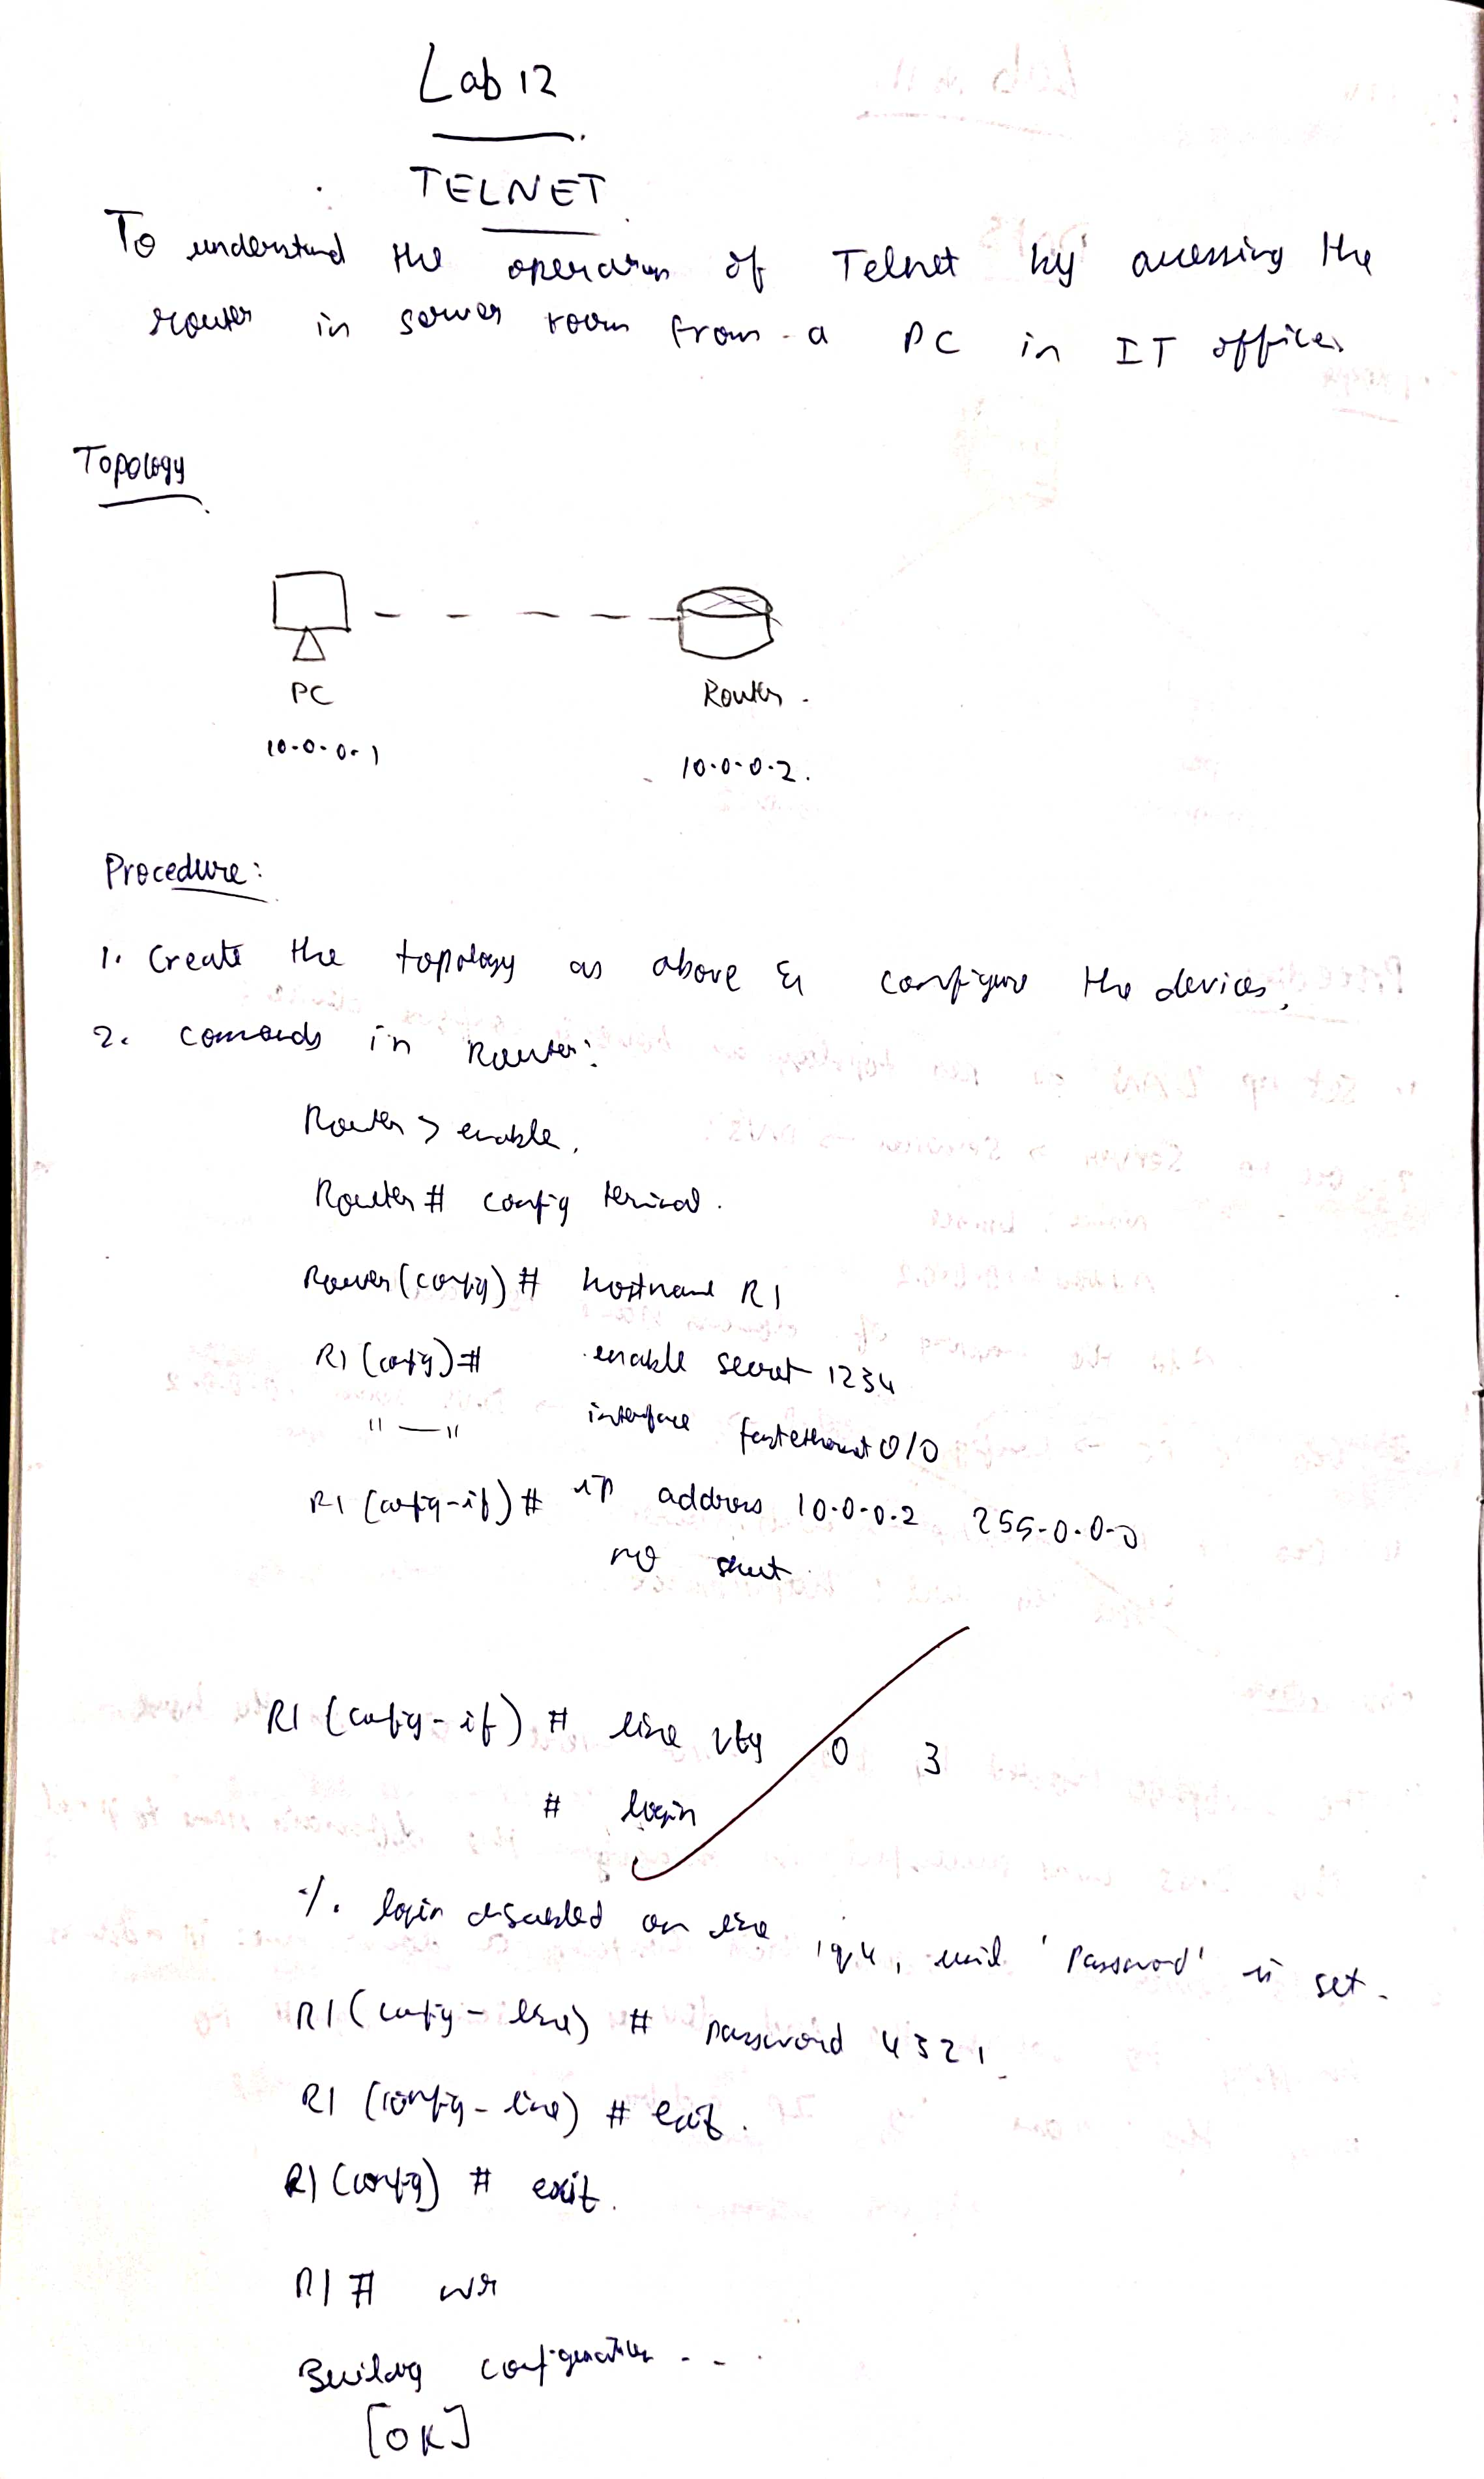 Lab 12
TELNET
To understand the operation of Telnet by accessing the
router in server room from a PC in IT office.
Topology
PC
Router
10.0.0.1
10.0.0.2.
Procedure:
1. Create the topology as above & configure the devices.
2. Comands in Router:
Router > enable.
Router # config terminal.
Router (config) # hostname R1
R1 (config) # enable secret 1234
" — " interface fastethernet 0/0
R1 (config-if) # ip address 10.0.0.2 255.0.0.0
no shut
R1 (config-if) # line vty 0 3
# login
%. login disabled on line 194, until 'Password' is set.
R1 (config-line) # password 4321
R1 (config-line) # exit.
R1 (config) # exit.
R1 # wr
Building configuration ...
[OK]